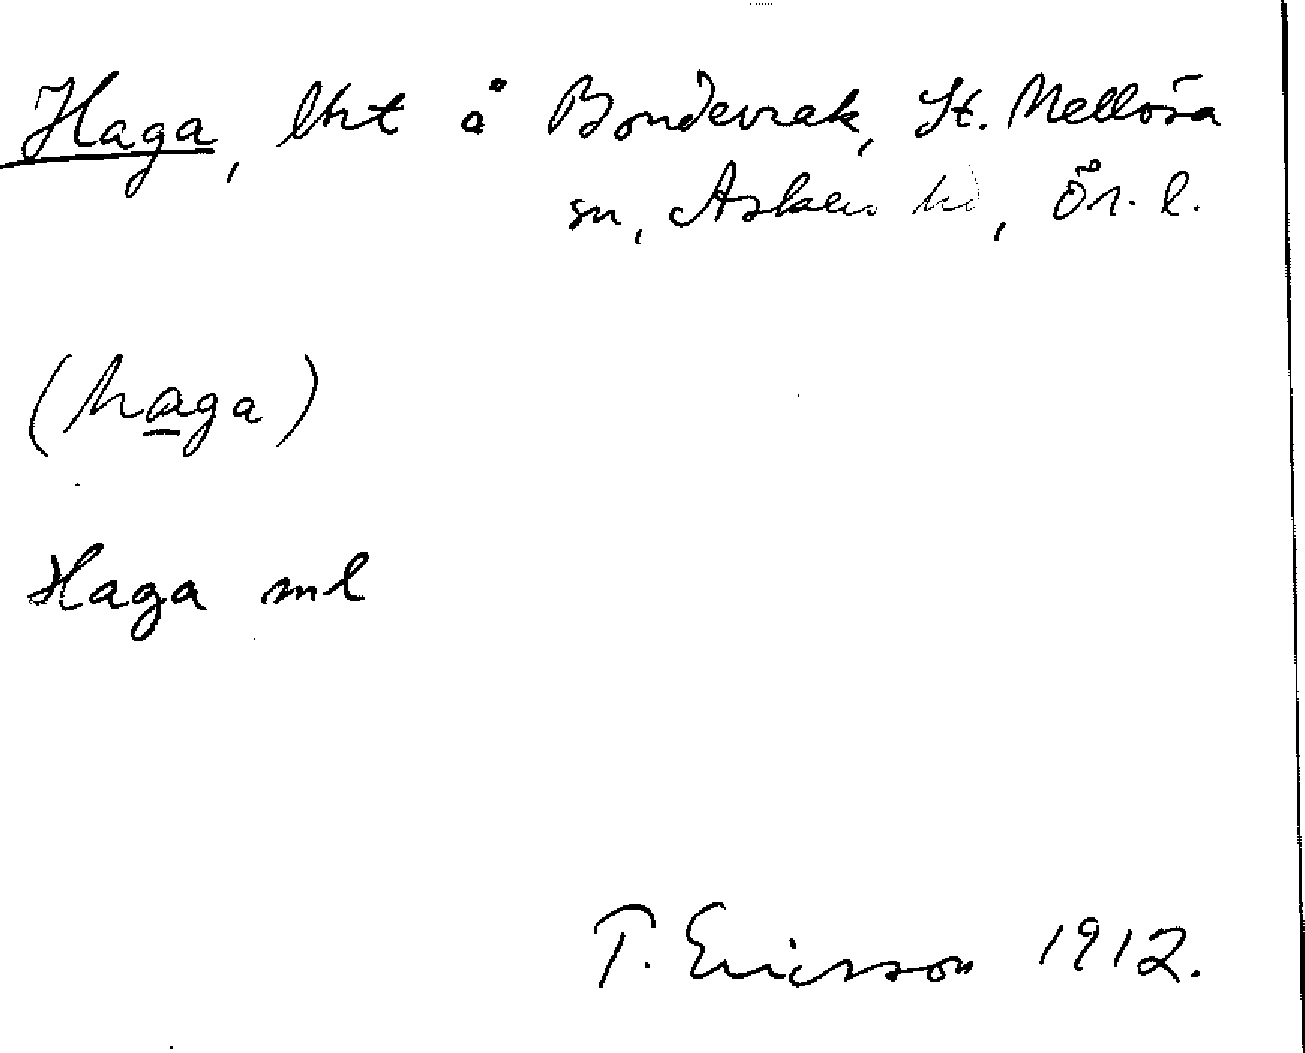 Haga, lht å Bondevrak, St. Mellösa
sn, Askers hd, Ör. l.
(haga)
Haga ml
T. Ericsson 1912.